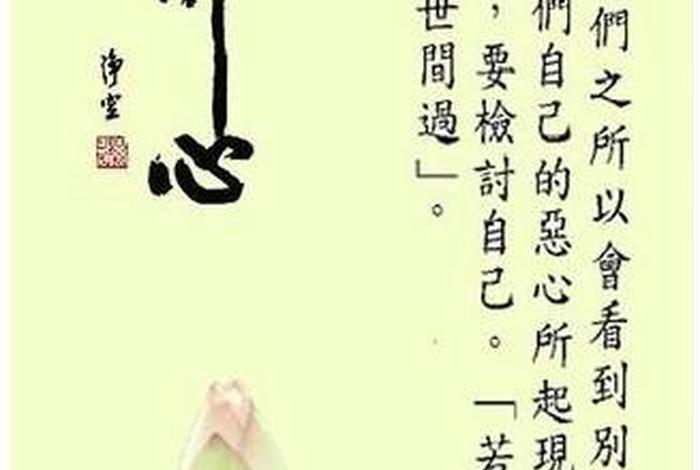 們之所以會看到別
們自己的惡心所起現
，要檢討自己。「若
世間過」。
心
淨空